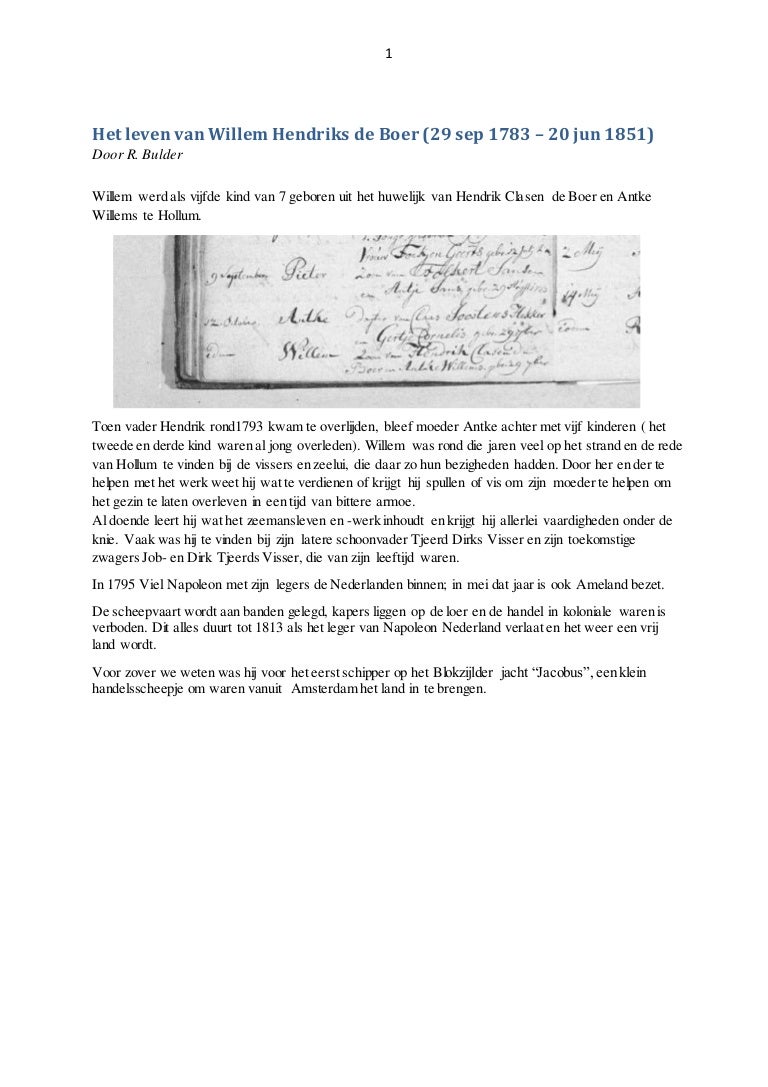 1
Het leven van Willem Hendriks de Boer (29 sep 1783 – 20 jun 1851)
Door R. Bulder
Willem werd als vijfde kind van 7 geboren uit het huwelijk van Hendrik Clasen de Boer en Antke
Willems te Hollum.
Vrouw Fockjen Geerts 2 Meij
9 September Pieter Zoon van
en Antje
14 Meij
12 October Antke Dogter van Claas Hakker
en Gertje Cornelis
Edem Willem Zoon van Hendrik Clasen de
Boer en Antke Willems geb 29
Toen vader Hendrik rond1793 kwam te overlijden, bleef moeder Antke achter met vijf kinderen ( het
tweede en derde kind waren al jong overleden). Willem was rond die jaren veel op het strand en de rede
van Hollum te vinden bij de vissers en zeelui, die daar zo hun bezigheden hadden. Door her en der te
helpen met het werk weet hij wat te verdienen of krijgt hij spullen of vis om zijn moeder te helpen om
het gezin te laten overleven in een tijd van bittere armoe.
Al doende leert hij wat het zeemansleven en -werk inhoudt en krijgt hij allerlei vaardigheden onder de
knie. Vaak was hij te vinden bij zijn latere schoonvader Tjeerd Dirks Visser en zijn toekomstige
zwagers Job- en Dirk Tjeerds Visser, die van zijn leeftijd waren.
In 1795 Viel Napoleon met zijn legers de Nederlanden binnen; in mei dat jaar is ook Ameland bezet.
De scheepvaart wordt aan banden gelegd, kapers liggen op de loer en de handel in koloniale waren is
verboden. Dit alles duurt tot 1813 als het leger van Napoleon Nederland verlaat en het weer een vrij
land wordt.
Voor zover we weten was hij voor het eerst schipper op het Blokzijlder jacht “Jacobus”, een klein
handelsscheepje om waren vanuit Amsterdam het land in te brengen.